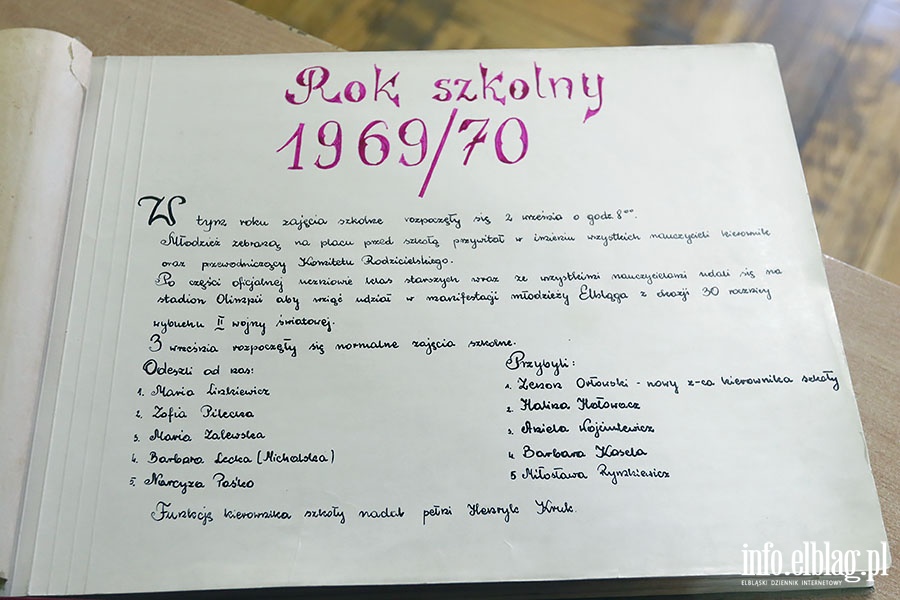 Rok szkolny
1969/70
W tym roku zajęcia szkolne rozpoczęły się 2 września o godz. 8⁰⁰.
Młodzież zebraną na placu przed szkołą przywitał w imieniu wszystkich nauczycieli kierownik
oraz przewodniczący Komitetu Rodzicielskiego.
Po części oficjalnej uczniowie klas starszych wraz ze wszystkimi nauczycielami udali się na
stadion Olimpii aby wziąć udział w manifestacji młodzieży Elbląga z okazji 30 rocznicy
wybuchu II wojny światowej.
3 września rozpoczęły się normalne zajęcia szkolne.
Odeszli od nas:
1. Maria Linkiewicz
2. Zofia Pilecka
3. Maria Zalewska
4. Barbara Lecka (Michalska)
5. Narcyza Paśko
Przybyli:
1. Zenon Orłowski - nowy z-ca kierownika szkoły
2. Halina Hołowacz
3. Aniela Wojciulewicz
4. Barbara Kasela
5 Miłosława Rynkiewicz
Funkcję kierownika szkoły nadal pełni Henryk Kruk.
info.elblag.pl
ELBLĄSKI DZIENNIK INTERNETOWY